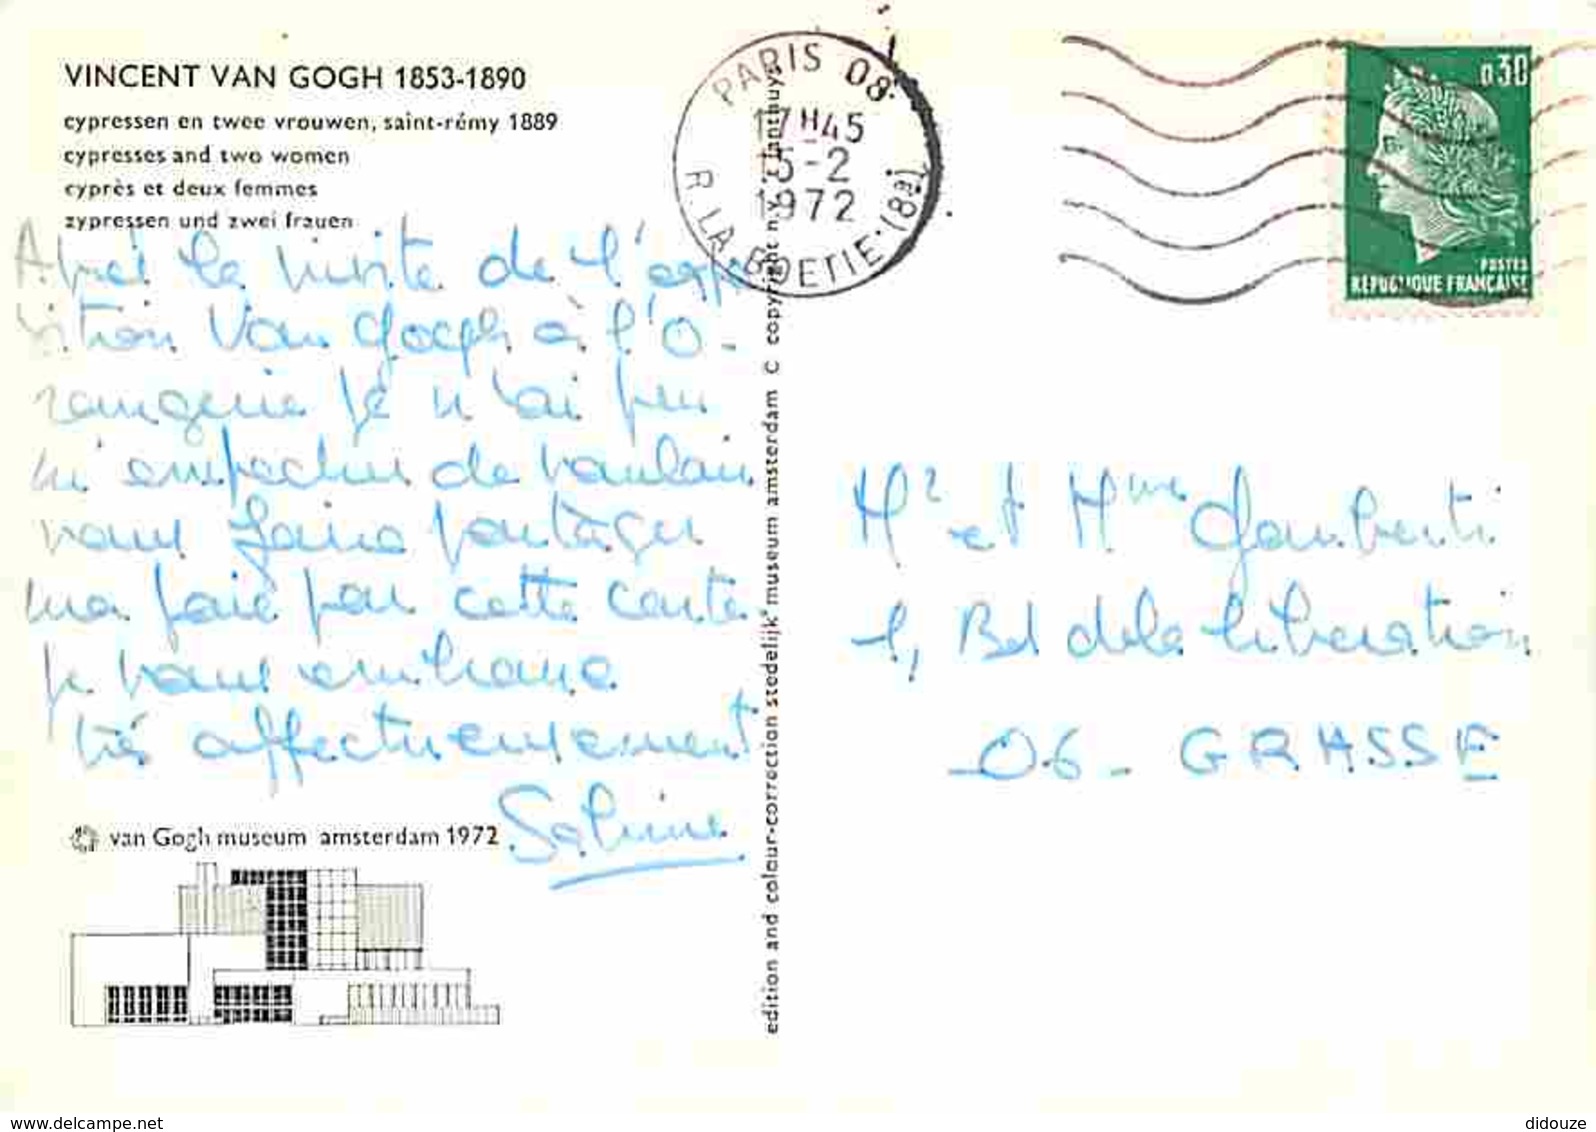 VINCENT VAN GOGH 1853-1890
cypressen en twee vrouwen, saint-rémy 1889
cypresses and two women
cyprès et deux femmes
zypressen und zwei frauen
Après la visite de l'expo
sition Van Gogh à l'O-
rangerie je n'ai pu
m'empecher de vouloir
vous faire partager
ma joie par cette carte
je vous embrasse
très affectueusement
Sabine
van Gogh museum amsterdam 1972
edition and colour-correction stedelijk museum amsterdam C copyright n.v.
PARIS 08
17H45
5-2
1972
R. LA BOETIE (8e)
0,30
POSTES
RÉPUBLIQUE FRANÇAISE
Mr et Mme Jamberti
1, Bd de la liberation
06 - GRASSE
www.delcampe.net
didouze